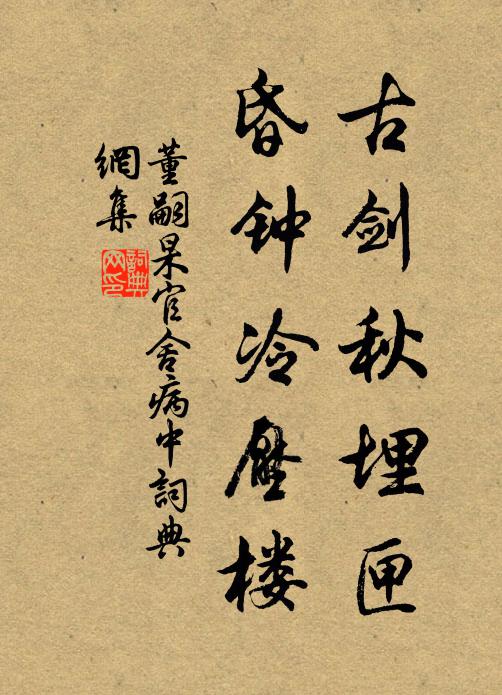 古剑秋埋匣
昏钟冷压楼
董嗣杲官舍病中詞典
網集
詞典
网印